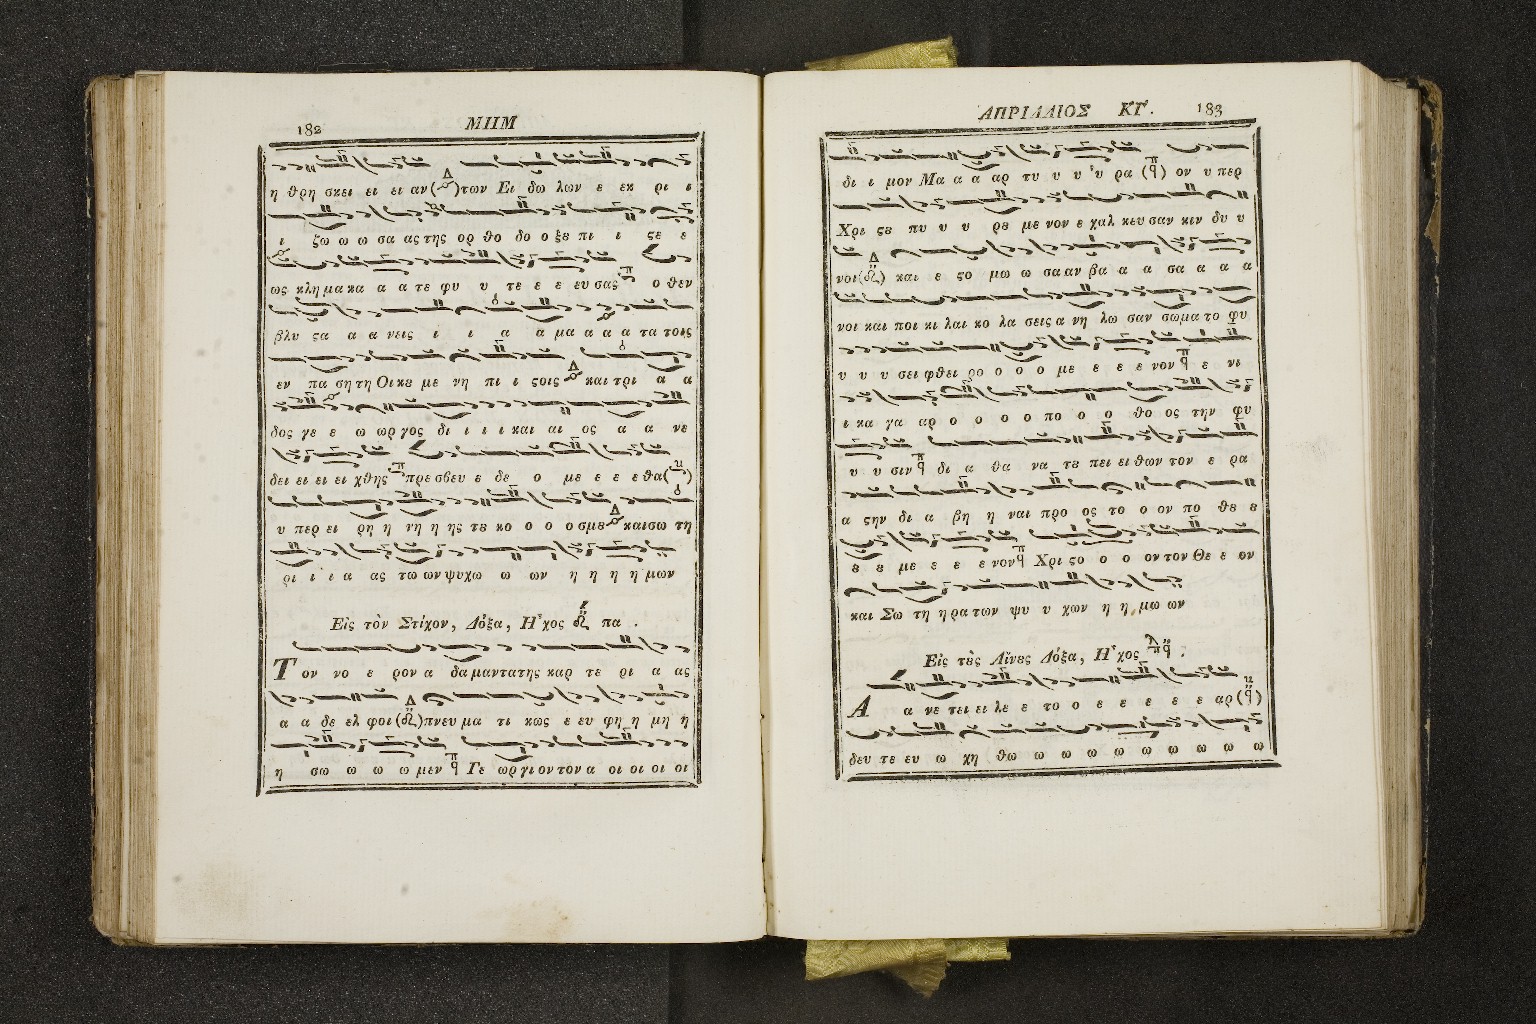 182 ΜΗΜ
η θρη σκει ει ει αν(Δ)των Ει δω λων ε εκ ρι ι
ι ζω ω ω σα ας της ορ θο δο ο ξȣ πι ι ϛε ε
ως κλη μα κα α α τε φυ υ τε ε ε ευ σας π ο θεν
βλυ ϛα α α νεις ι ι α α μα α α α τα τοις
εν πα ση τη Οι κȣ με νη πι ι ϛοις Δ και τρι α α
δος γε ε ω ωρ γος δι ι ι ι και αι ος α α νε
δει ει ει ει χθης π πρε σβευ ε δε ο με ε ε ε θα(ν)
υ περ ει ρη η νη η ης τȣ κο ο ο ο σμȣ Δ και σω τη
ρι ι ι α ας τω ων ψυχω ω ων η η η η μων
Εἰς τὸν Στίχον, Δόξα, Ἦχος πα .
Τον νο ε ρον α δα μαντα της καρ τε ρι α ας
α α δε ελ φοι(Δ)πνευ μα τι κως ε ευ φη η μη η
η σω ω ω ω μεν π Γε ωρ γι ον τον α οι οι οι οι
ΑΠΡΙΛΛΙΟΣ ΚΓ. 183
δι ι μον Μα α α αρ τυ υ υ υ υ ρα (π) ον υ περ
Χρι ϛȣ πυ υ υ ρȣ με νον ε χαλ κευ σαν κιν δυ υ
νοι(Δ) και ε ϛο μω ω σα αν βα α α σα α α α
νοι και ποι κι λαι κο λα σεις α νη λω σαν σωμα το φυ
υ υ υ σει φθει ρο ο ο ο με ε ε ε νον π ε νι
ι κα γα αρ ο ο ο ο πο ο ο θο ος την φυ
υ υ σιν π δι α θα να τȣ πει ει θων τον ε ρα
α ϛην δι α βη η ναι προ ος το ο ον πο θȣ ȣ
ȣ ȣ με ε ε ε νον π Χρι ϛο ο ο ον τον Θε ε ον
και Σω τη η ρα των ψυ υ χων η η μω ων
Εἰς τȣ̀ς Αἴνȣς Δόξα, Ἦχος π .
Α α νε τει ει λε ε το ο ε ε ε ε ε αρ (ν)
δευ τε ευ ω χη θω ω ω ω ω ω ω ω ω ω